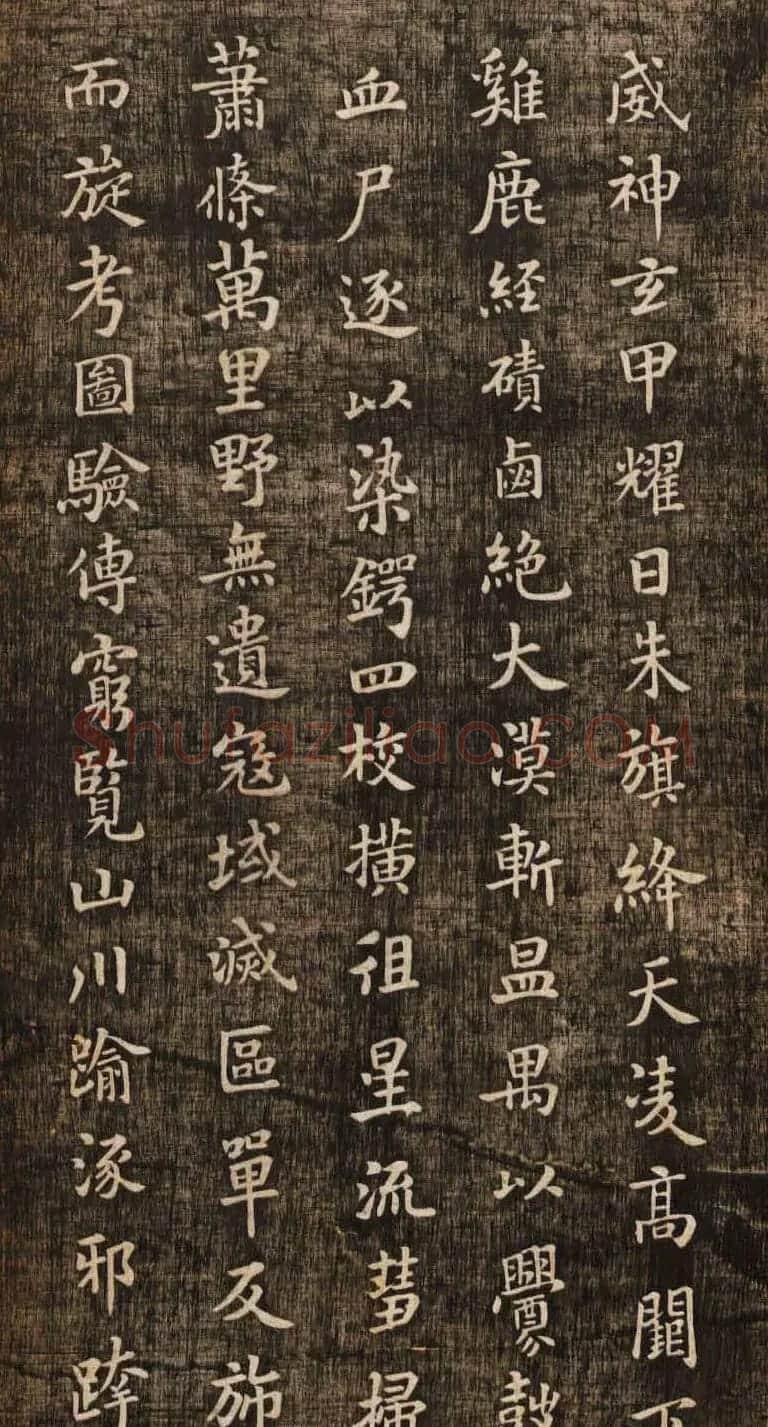 威神玄甲耀日朱旗絳天凌高闕下
雞鹿経磧鹵絶大漠斬昷禺以釁鼓
血尸逐以染鍔四校横徂星流彗掃
蕭條萬里野無遺寇域滅區單反旆
而旋考圖驗傳窮覽山川踰涿邪跨
Shufaziliao.COM